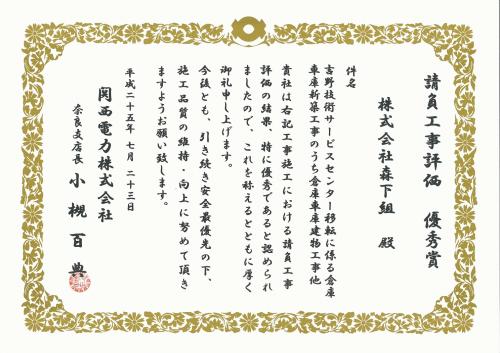 請負工事評価　優秀賞
株式会社森下組　殿
件名
吉野技術サービスセンター移転に係る倉庫
車庫新築工事のうち倉庫車庫建物工事他
貴社は右記工事施工における請負工事
評価の結果、特に優秀であると認められ
ましたので、これを称えるとともに厚く
御礼申し上げます。
今後とも、引き続き安全最優先の下、
施工品質の維持・向上に努めて頂き
ますようお願い致します。
平成二十五年　七月　二十三日
関西電力株式会社
奈良支店長　小槻百典